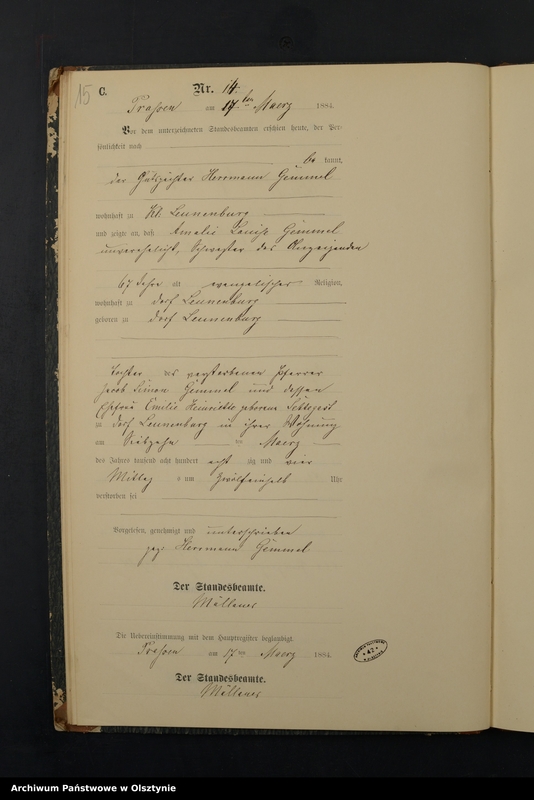 15
C.
Nr. 14.
Prassen am 17ten Maerz 1884.
Vor dem unterzeichneten Standesbeamten erschien heute, der Per-
sönlichkeit nach
be kannt,
der Gutspächter Herrmann Gemmel
wohnhaft zu Kl. Leunenburg
und zeigte an, daß Amalie Louise Gemmel
unverehelicht, Schwester des Anzeigenden
67 Jahr alt evangelischer Religion,
wohnhaft zu dorf Leunenburg
geboren zu dorf Leunenburg
Tochter des verstorbenen Pfarrer
Jacob Simon Gemmel und dessen
Ehefrau Emilie Heinriette geborene
zu dorf Leunenburg in ihrer Wohnung
am Siebzehn ten Maerz
des Jahres tausend acht hundert acht zig und vier
Mittag s um zwölfeinhalb Uhr
verstorben sei
Vorgelesen, genehmigt und unterschrieben
gez. Herrmann Gemmel
Der Standesbeamte.
Die Uebereinstimmung mit dem Hauptregister beglaubigt
Prassen am 17ten Maerz 1884.
Der Standesbeamte.
Archiwum Państwowe w Olsztynie